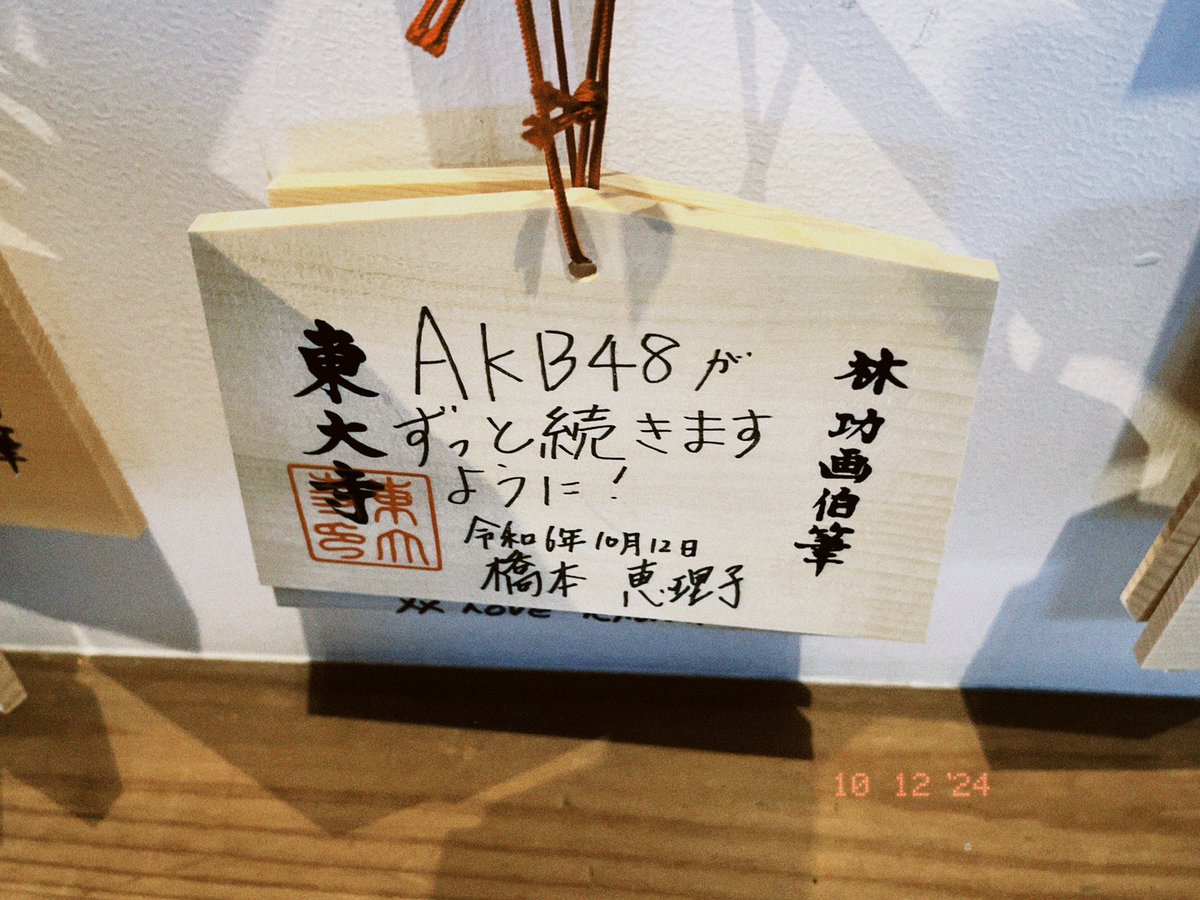 林功画伯筆
AKB48が
ずっと続きます
ように!
令和6年10月12日
橋本 恵理子
東大寺
東大寺印
10 12 '24